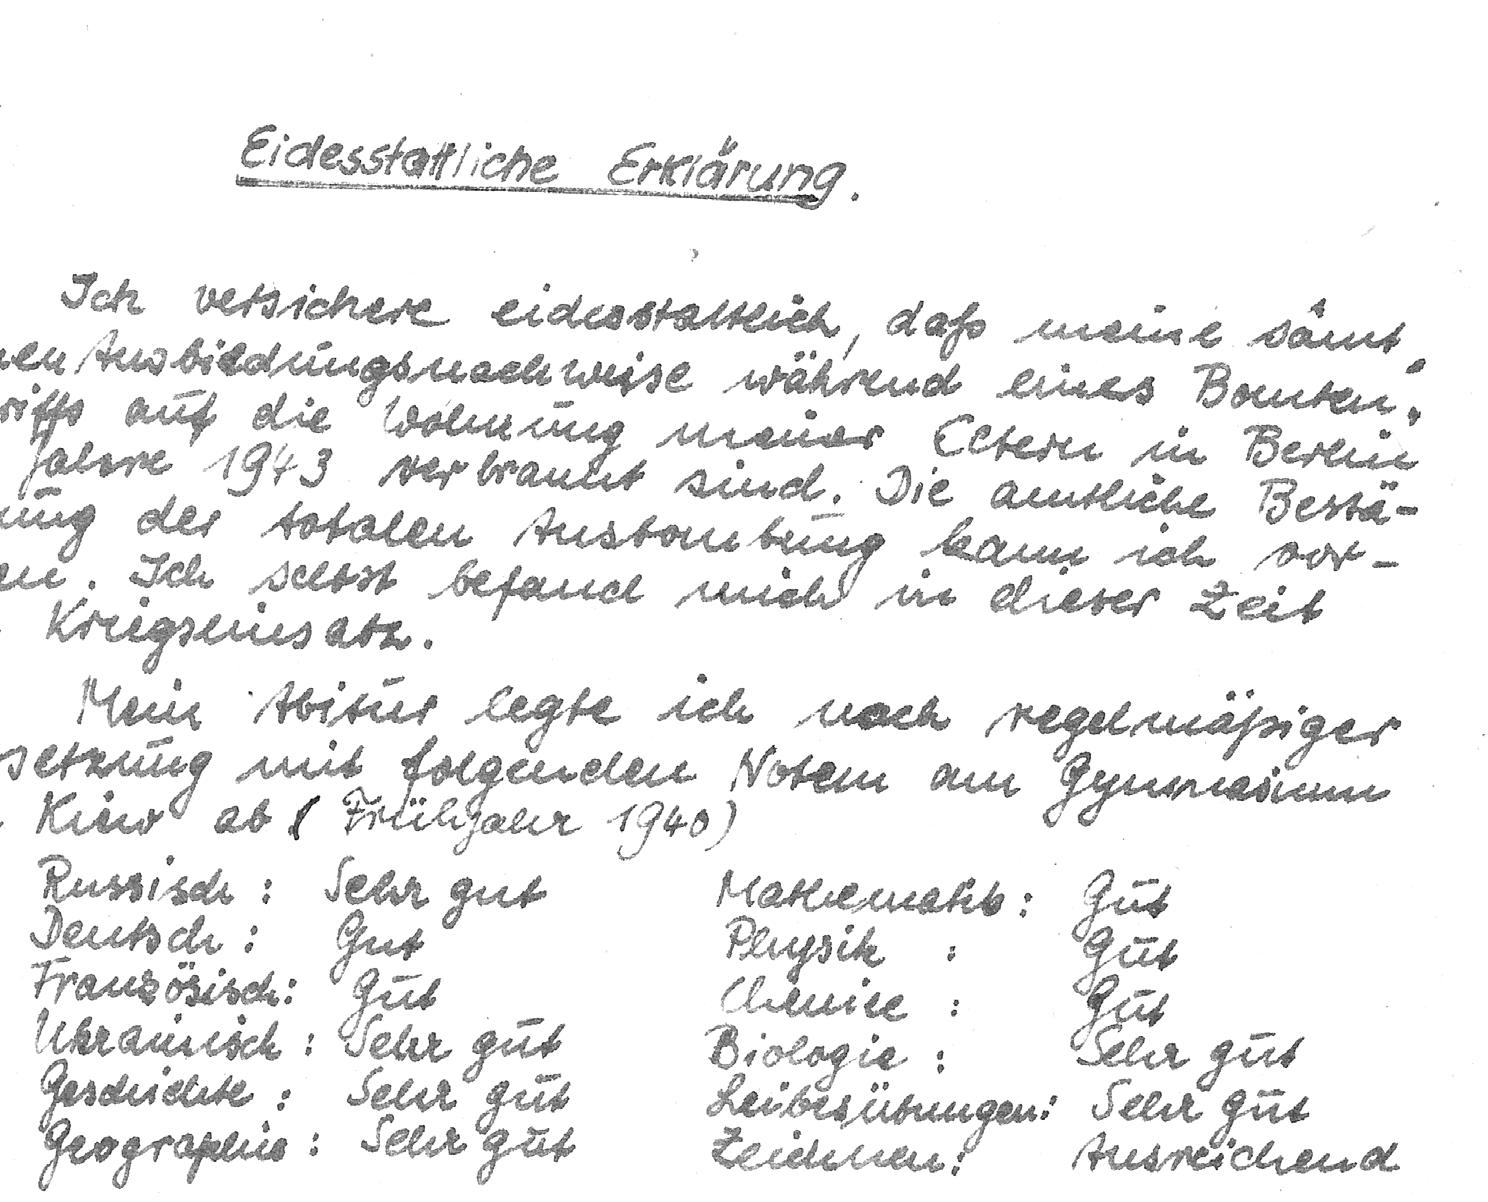 Eidesstattliche Erklärung.
Ich versichere eidesstattlich, daß meine sämt„
nen Ausbildungsnachweise während eines Bomben„
riffs auf die Wohnung meiner Eltern in Berlin
Jahre 1943 verbrannt sind. Die amtliche Bestä-
ung der totalen Ausbombung kann ich vor-
en. Ich selbst befand mich in dieser Zeit
Kriegseinsatz.
Mein Abitur legte ich nach regelmäßiger
setzung mit folgenden Noten am Gymnasium
Kiew ab (Frühjahr 1940)
Russisch: Sehr gut Mathematik: Gut
Deutsch: Gut Physik : Gut
Französisch: Gut Chemie : Gut
Ukrainisch: Sehr gut Biologie : Sehr gut
Geschichte: Sehr gut Leibesübungen: Sehr gut
Geographie: Sehr gut Zeichnen: Ausreichend